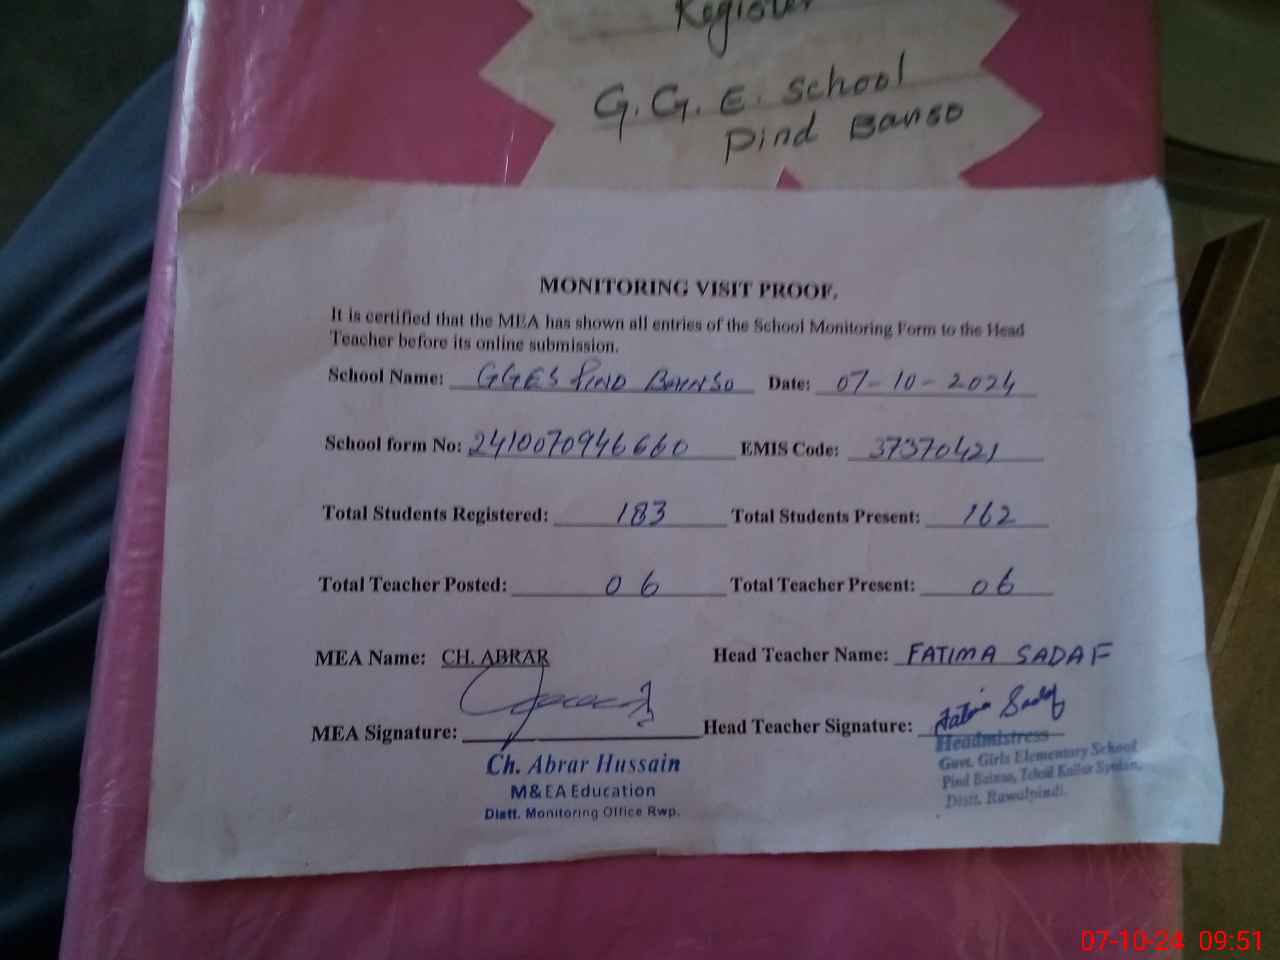 Register
G.G.E. School
Pind Banso
MONITORING VISIT PROOF.
It is certified that the MEA has shown all entries of the School Monitoring Form to the Head
Teacher before its online submission.
School Name: GGES PIND BAINSO Date: 07-10-2024
School form No: 2410070946660 EMIS Code: 37370421
Total Students Registered: 183 Total Students Present: 162
Total Teacher Posted: 06 Total Teacher Present: 06
MEA Name: CH. ABRAR Head Teacher Name: FATIMA SADAF
MEA Signature: Head Teacher Signature: Fatima Sadaf
Ch. Abrar Hussain
M&EA Education
Distt. Monitoring Office Rwp.
Headmistress
Govt. Girls Elementary School
Pind Bainso, Tehsil Kallar Syedan,
Distt. Rawalpindi.
07-10-24 09:51